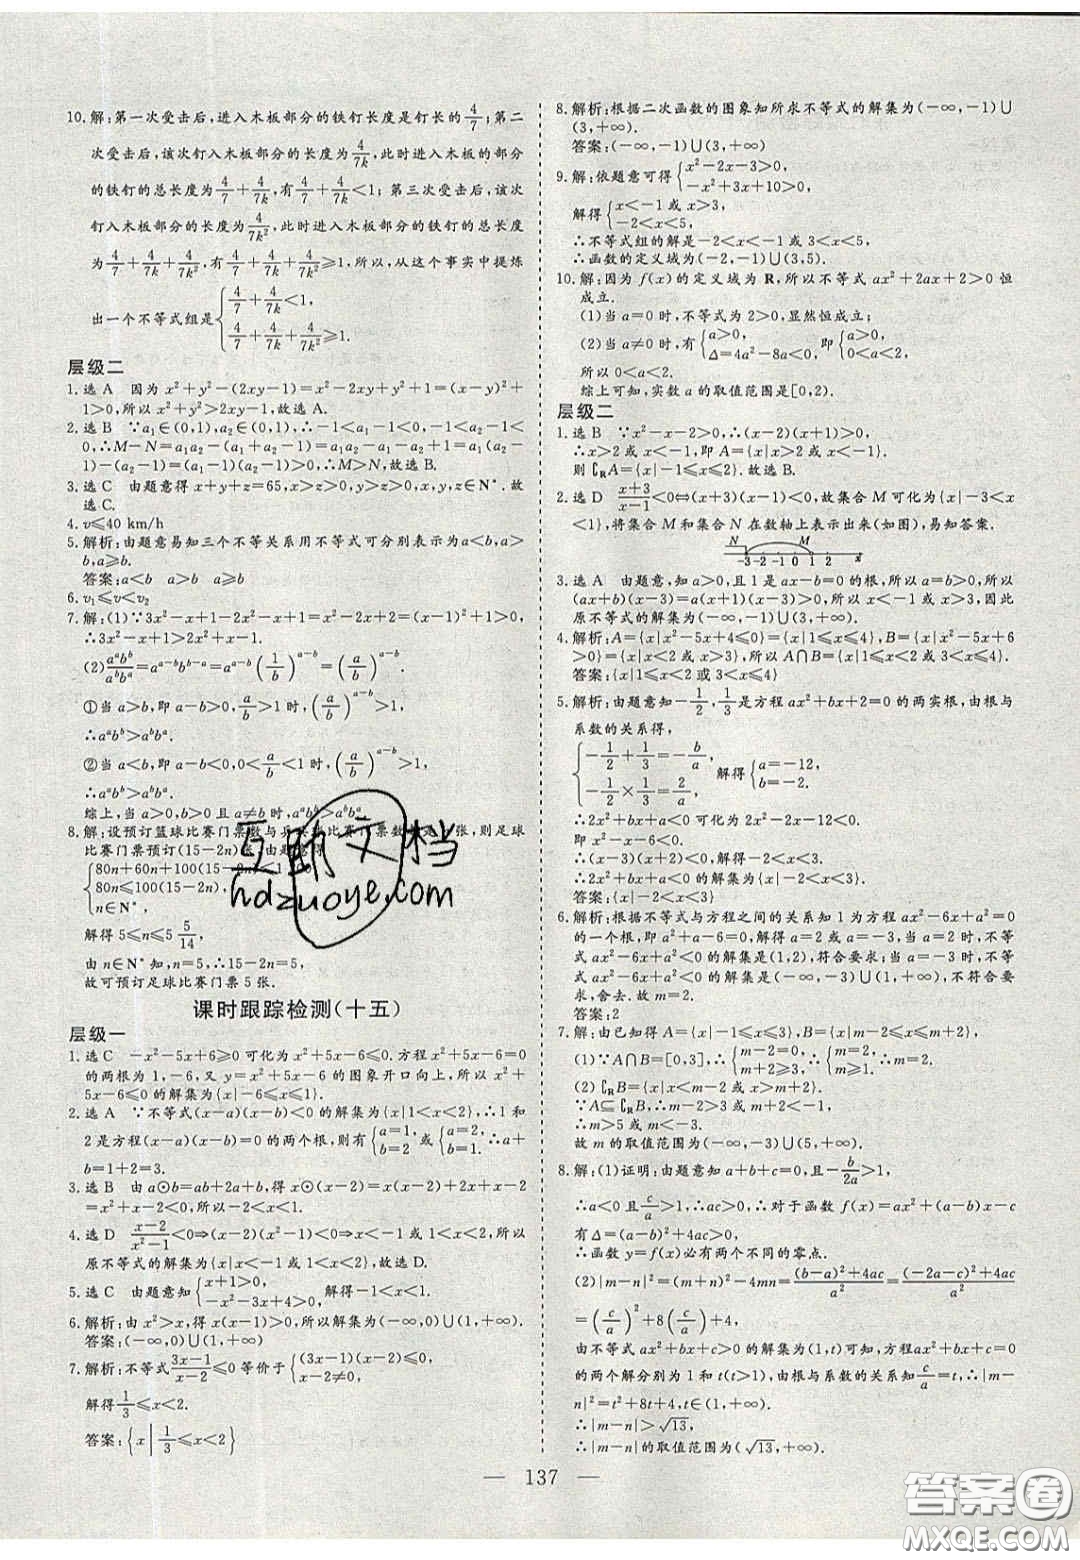 10.解:第一次受击后,进入木板部分的铁钉长度是钉长的4/7;第二
次受击后,该次钉入木板部分的长度为4/7k,此时进入木板部分
的铁钉的总长度为4/7+4/7k,有4/7+4/7k<1;第三次受击后,该次
钉入木板部分的长度为4/7k²,此时进入木板部分的铁钉的总长度
为4/7+4/7k+4/7k²,有4/7+4/7k+4/7k²≥1,所以,从这个事实中提炼
出一个不等式组是{4/7+4/7k<1,
4/7+4/7k+4/7k²≥1.
层级二
1.选 A 因为 x²+y²-(2xy-1)=x²-2xy+y²+1=(x-y)²+
1>0,所以 x²+y²>2xy-1,故选 A.
2.选 B ∵a₁∈(0,1),a₂∈(0,1),∴-1<a₁-1<0,-1<a₂-1<
0,∴M-N=a₁a₂-(a₁+a₂-1)=a₁a₂-a₁-a₂+1=a₁(a₂
-1)-(a₂-1)=(a₁-1)(a₂-1)>0,∴M>N,故选 B.
3.选 C 由题意得 x+y+z=65,x>z>0,y>z>0,x,y,z∈N*.故
选 C.
4.v≤40 km/h
5.解析:由题意易知三个不等关系用不等式可分别表示为a<b,a>
b,a≥b.
答案:a<b a>b a≥b
6.v₁≤v<v₂
7.解:(1)∵3x²-x+1-2x²-x+1=x²-2x+2=(x-1)²+1>0,
∴3x²-x+1>2x²+x-1.
(2)aᵃbᵇ/aᵇbᵃ=aᵃ⁻ᵇbᵇ⁻ᵃ=aᵃ⁻ᵇ(1/b)ᵃ⁻ᵇ=(a/b)ᵃ⁻ᵇ.
①当 a>b,即 a-b>0,a/b>1时,(a/b)ᵃ⁻ᵇ>1,
∴aᵃbᵇ>aᵇbᵃ.
②当 a<b,即 a-b<0,a/b<1时,(a/b)ᵃ⁻ᵇ>1,
∴aᵃbᵇ>aᵇbᵃ.
综上,当 a>0,b>0 且 a≠b 时,aᵃbᵇ>aᵇbᵃ.
8.解:设预订篮球比赛门票数与乒乓球比赛门票数 n 张,则足球
比赛门票预订(15-2n)张,由题意得
{80n+60n+100(15-2n)
80n≤100(15-2n),
n∈N*,
解得 5≤n≤5 5/14,
由 n∈N* 知,n=5,∴15-2n=5,
故可预订足球比赛门票 5 张.
课时跟踪检测(十五)
层级一
1.选 C -x²-5x+6≥0 可化为 x²+5x-6≤0.方程 x²+5x-6=0
的两根为 1,-6,又 y=x²+5x-6 的图象开口向上,所以 x²+
5x-6≤0 的解集为{x|-6≤x≤1}.
2.选 A ∵不等式(x-a)(x-b)<0 的解集为{x|1<x<2},∴1 和
2 是方程(x-a)(x-b)=0 的两个根,则有{a=1, b=2 或{a=2, b=1, ∴a+
b=1+2=3.
3.选 B 由 a⊙b=ab+2a+b,得 x⊙(x-2)=x(x-2)+2x+x-2
=x²+x-2<0,所以-2<x<1.
4.选 D x-2/x²-1<0⇒(x-2)(x²-1)<0⇒x<-1 或 1<x<2,所以
原不等式的解集为{x|x<-1 或 1<x<2}.
5.选 C 由题意知{x+1>0, -x²-3x+4>0, 解得-1<x<1.
6.解析:由 x²>x,得 x(x-1)>0,所以解集为(-∞,0)∪(1,+∞).
答案:(-∞,0)∪(1,+∞)
7.解析:不等式3x-1/x-2≤0 等价于{(3x-1)(x-2)≤0, x-2≠0,
解得1/3≤x<2.
答案:{x|1/3≤x<2}
8.解析:根据二次函数的图象知所求不等式的解集为(-∞,-1)∪
(3,+∞).
答案:(-∞,-1)∪(3,+∞)
9.解:依题意可得{x²-2x-3>0, -x²+3x+10>0,
解得{x<-1 或 x>3, -2<x<5,
∴不等式组的解是-2<x<-1 或 3<x<5.
∴函数的定义域为(-2,-1)∪(3,5).
10.解:因为 f(x)的定义域为 R,所以不等式 ax²+2ax+2>0 恒
成立.
(1)当 a=0 时,不等式为 2>0,显然恒成立;
(2)当 a≠0 时,有{a>0, Δ=4a²-8a<0, 即{a>0, 0<a<2,
所以 0<a<2.
综上可知,实数 a 的取值范围是[0,2).
层级二
1.选 B ∵x²-x-2>0,∴(x-2)(x+1)>0,
∴x>2 或 x<-1,即 A={x|x>2 或 x<-1}.
则∁RA={x|-1≤x≤2}.故选 B.
2.选 D x+3/x-1<0⇔(x+3)(x-1)<0,故集合 M 可化为{x|-3<x
<1},将集合 M 和集合 N 在数轴上表示出来(如图),易知答案.
N M
-3 -2 -1 0 1 2 x
3.选 A 由题意,知 a>0,且 1 是 ax-b=0 的根,所以 a=b>0,所以
(ax+b)(x-3)=a(x+1)(x-3)>0,所以 x<-1 或 x>3,因此
原不等式的解集为(-∞,-1)∪(3,+∞).
4.解析:A={x|x²-5x+4≤0}={x|1≤x≤4},B={x|x²-5x+6
>0}={x|x<2或x>3},所以A∩B={x|1≤x<2或3<x≤4}.
答案:{x|1≤x<2 或 3<x≤4}
5.解析:由题意知-1/2,1/3是方程 ax²+bx+2=0 的两实根,由根与
系数的关系得,
{-1/2+1/3=-b/a, -1/2×1/3=2/a, 解得{a=-12, b=-2.
∴2x²+bx+a<0⇔2x²-2x-12<0.
即 x²-x-6<0.
∴(x-3)(x+2)<0,解得-2<x<3.
∴2x²+bx+a<0 的解集为{x|-2<x<3}.
答案:{x|-2<x<3}
6.解析:根据不等式与方程之间的关系知 1 为方程 ax²-6x+a²=0
的一个根,即 a²+a-6=0,解得 a=2 或 a=-3,当 a=2 时,不等
式 ax²-6x+a²<0 的解集是(1,2),符合要求;当 a=-3 时,不等
式 ax²-6x+a²<0 的解集是(-∞,-3)∪(1,+∞),不符合要
求,舍去.故 m=2.
答案:2
7.解:由已知得 A={x|-1≤x≤3},B={x|m-2≤x≤m+2}.
(1)∵A∩B=[0,3],∴{m-2=0, m+2≥3, ∴{m=2, m≥1. ∴m=2.
(2)∁RB={x|x<m-2 或 x>m+2}.
∵A⊆∁RB,∴m-2>3 或 m+2<-1.
∴m>5 或 m<-3.
故 m 的取值范围为(-∞,-3)∪(5,+∞).
8.解:(1)证明:由题意知 a+b+c=0,且-b/2a>1,
∴a<0 且c/a>1,∴ac>0,∴对于函数 f(x)=ax²+(a-b)x-c
有 Δ=(a-b)²+4ac>0,
∴函数 y=f(x)必有两个不同的零点.
(2)|m-n|²=(m+n)²-4mn=(b-a)²+4ac/a²=(-2a-c)²+4ac/a²
=(c/a)²+8(c/a)+4,
由不等式 ax²+bx+c>0 的解集为(1,t)可知,方程 ax²+bx+c=0
的两个解分别为 1 和 t(t>1),由根与系数的关系知c/a=t,∴|m-
n|²=t²+8t+4,t∈(1,+∞).
∴|m-n|>√13,
∴|m-n|的取值范围为(√13,+∞).
— 137 —
互助文档
hdzuoye.com
答案圈
MXQE.COM